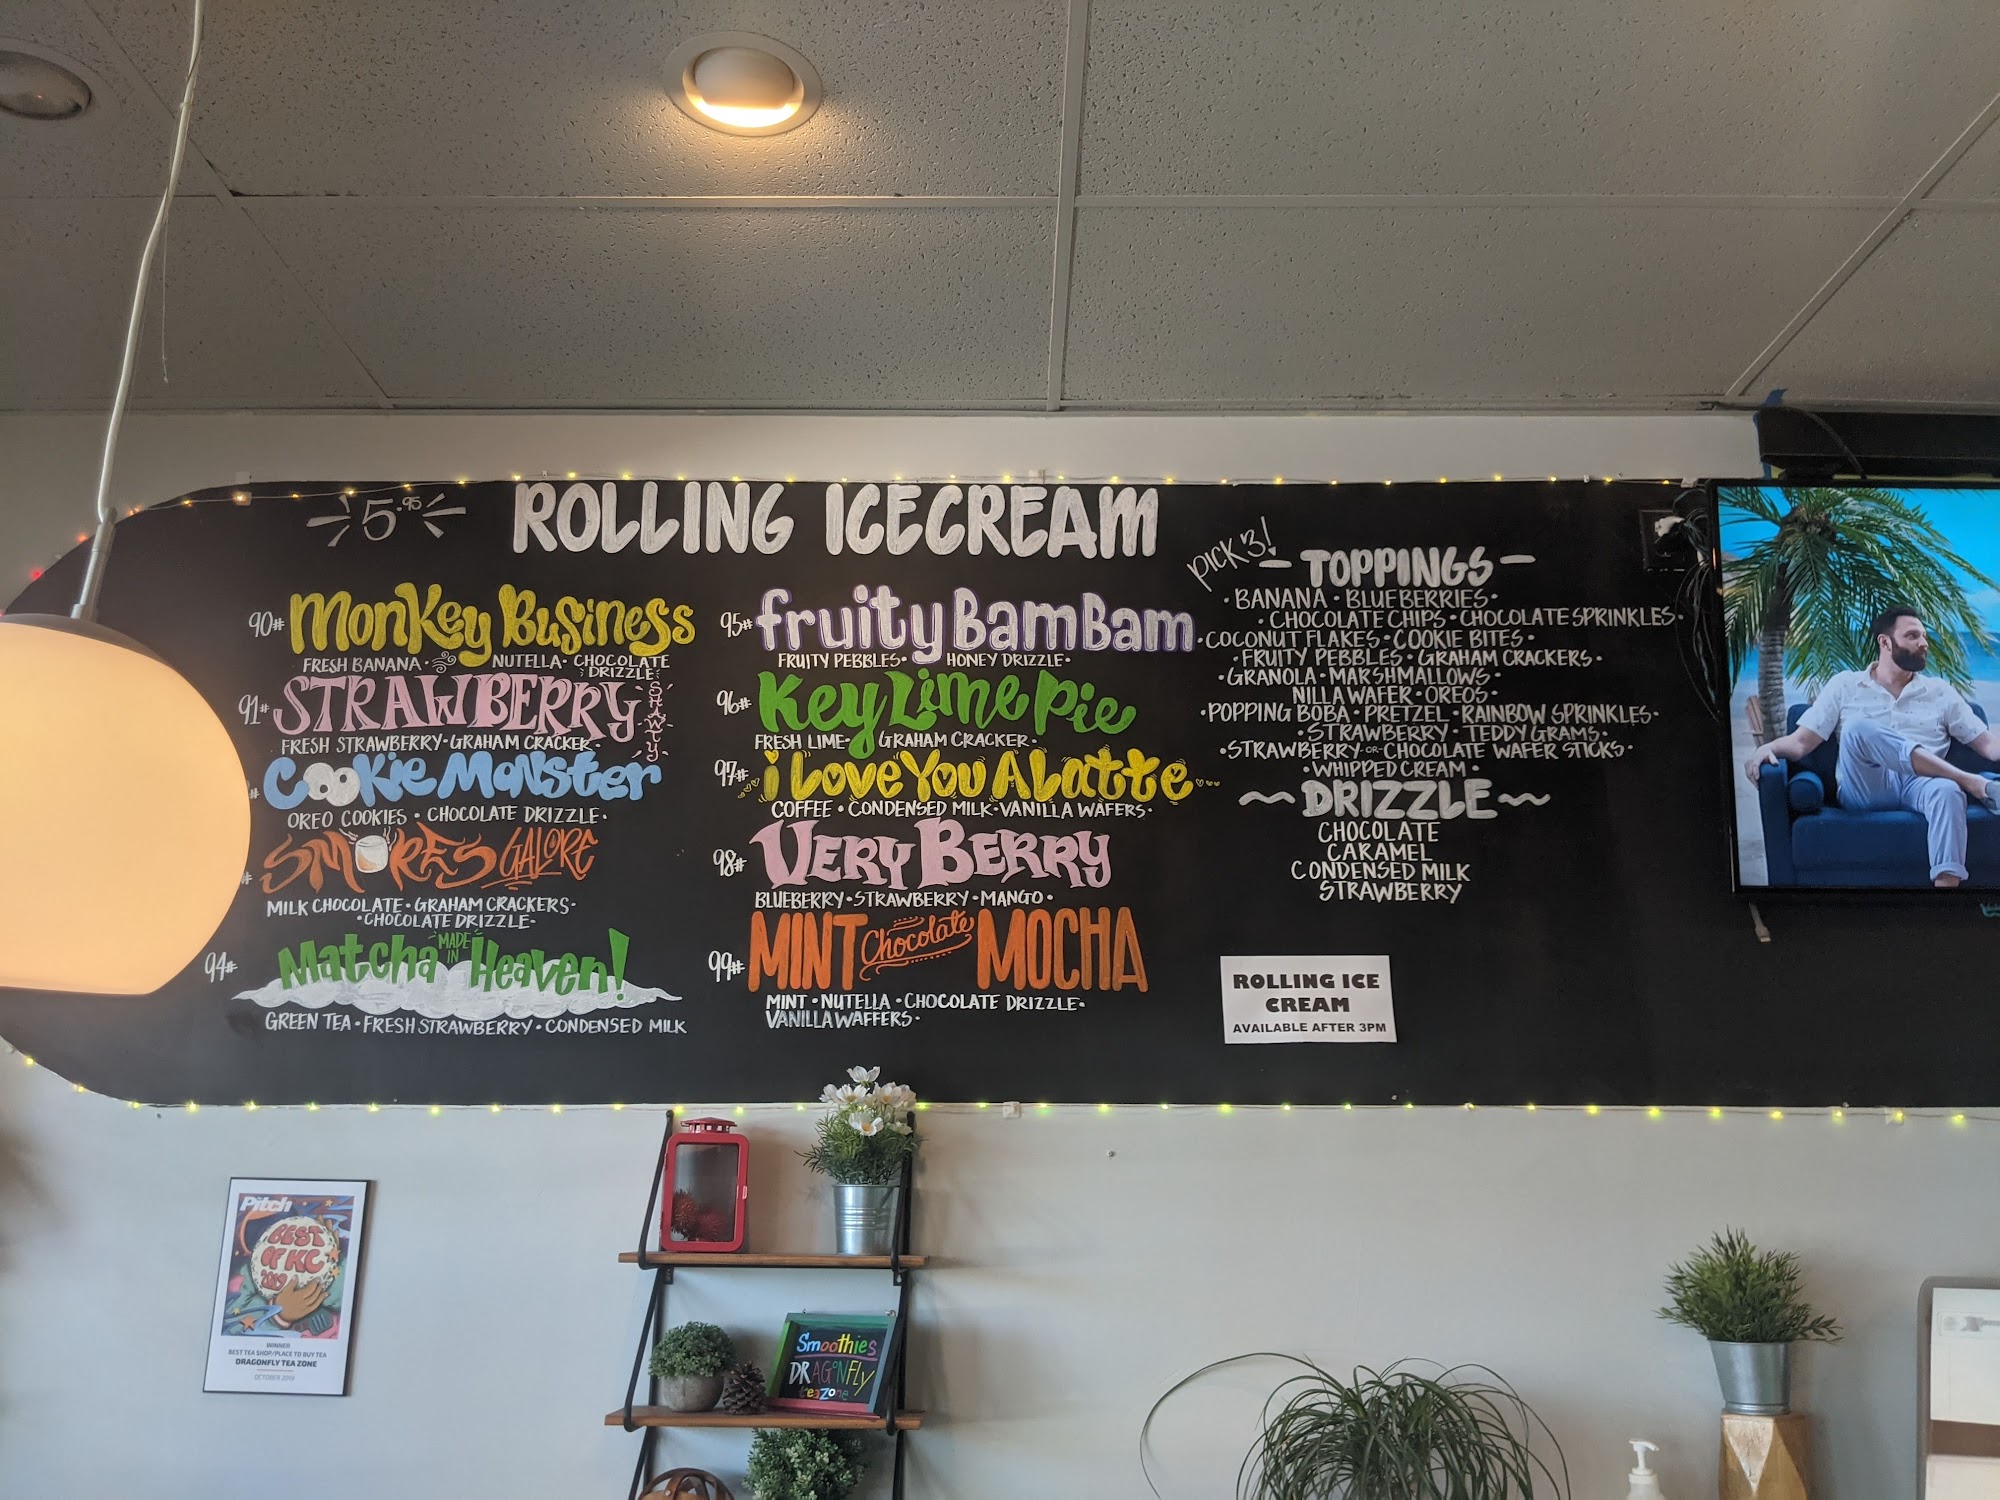 5.95
ROLLING ICECREAM
90# Monkey Business
FRESH BANANA · NUTELLA · CHOCOLATE
DRIZZLE
91# STRAWBERRY SHAWTY
FRESH STRAWBERRY · GRAHAM CRACKER ·
# COOKie MONster
OREO COOKIES · CHOCOLATE DRIZZLE ·
# SMORES GALORE
MILK CHOCOLATE · GRAHAM CRACKERS ·
· CHOCOLATE DRIZZLE ·
94# Matcha MADE IN Heaven!
GREEN TEA · FRESH STRAWBERRY · CONDENSED MILK
95# fruity BamBam
FRUITY PEBBLES · HONEY DRIZZLE ·
96# Key Lime Pie
FRESH LIME · GRAHAM CRACKER ·
97# i Love You A Latte
COFFEE · CONDENSED MILK · VANILLA WAFERS ·
98# VERY BERRY
BLUEBERRY · STRAWBERRY · MANGO ·
99# MINT Chocolate MOCHA
MINT · NUTELLA · CHOCOLATE DRIZZLE ·
VANILLA WAFFERS ·
PICK 3!
- TOPPINGS -
· BANANA · BLUEBERRIES ·
CHOCOLATE CHIPS · CHOCOLATE SPRINKLES ·
· COCONUT FLAKES · COOKIE BITES ·
· FRUITY PEBBLES · GRAHAM CRACKERS ·
· GRANOLA · MARSHMALLOWS ·
NILLA WAFER · OREOS ·
· POPPING BOBA · PRETZEL · RAINBOW SPRINKLES ·
· STRAWBERRY · TEDDY GRAMS ·
· STRAWBERRY -OR- CHOCOLATE WAFER STICKS ·
· WHIPPED CREAM ·
~ DRIZZLE ~
CHOCOLATE
CARAMEL
CONDENSED MILK
STRAWBERRY
ROLLING ICE
CREAM
AVAILABLE AFTER 3PM
Pitch
BEST
OF KC
2019
WINNER
BEST TEA SHOP/PLACE TO BUY TEA
DRAGONFLY TEA ZONE
OCTOBER 2019
Smoothies
DRAGONFLY
teazone